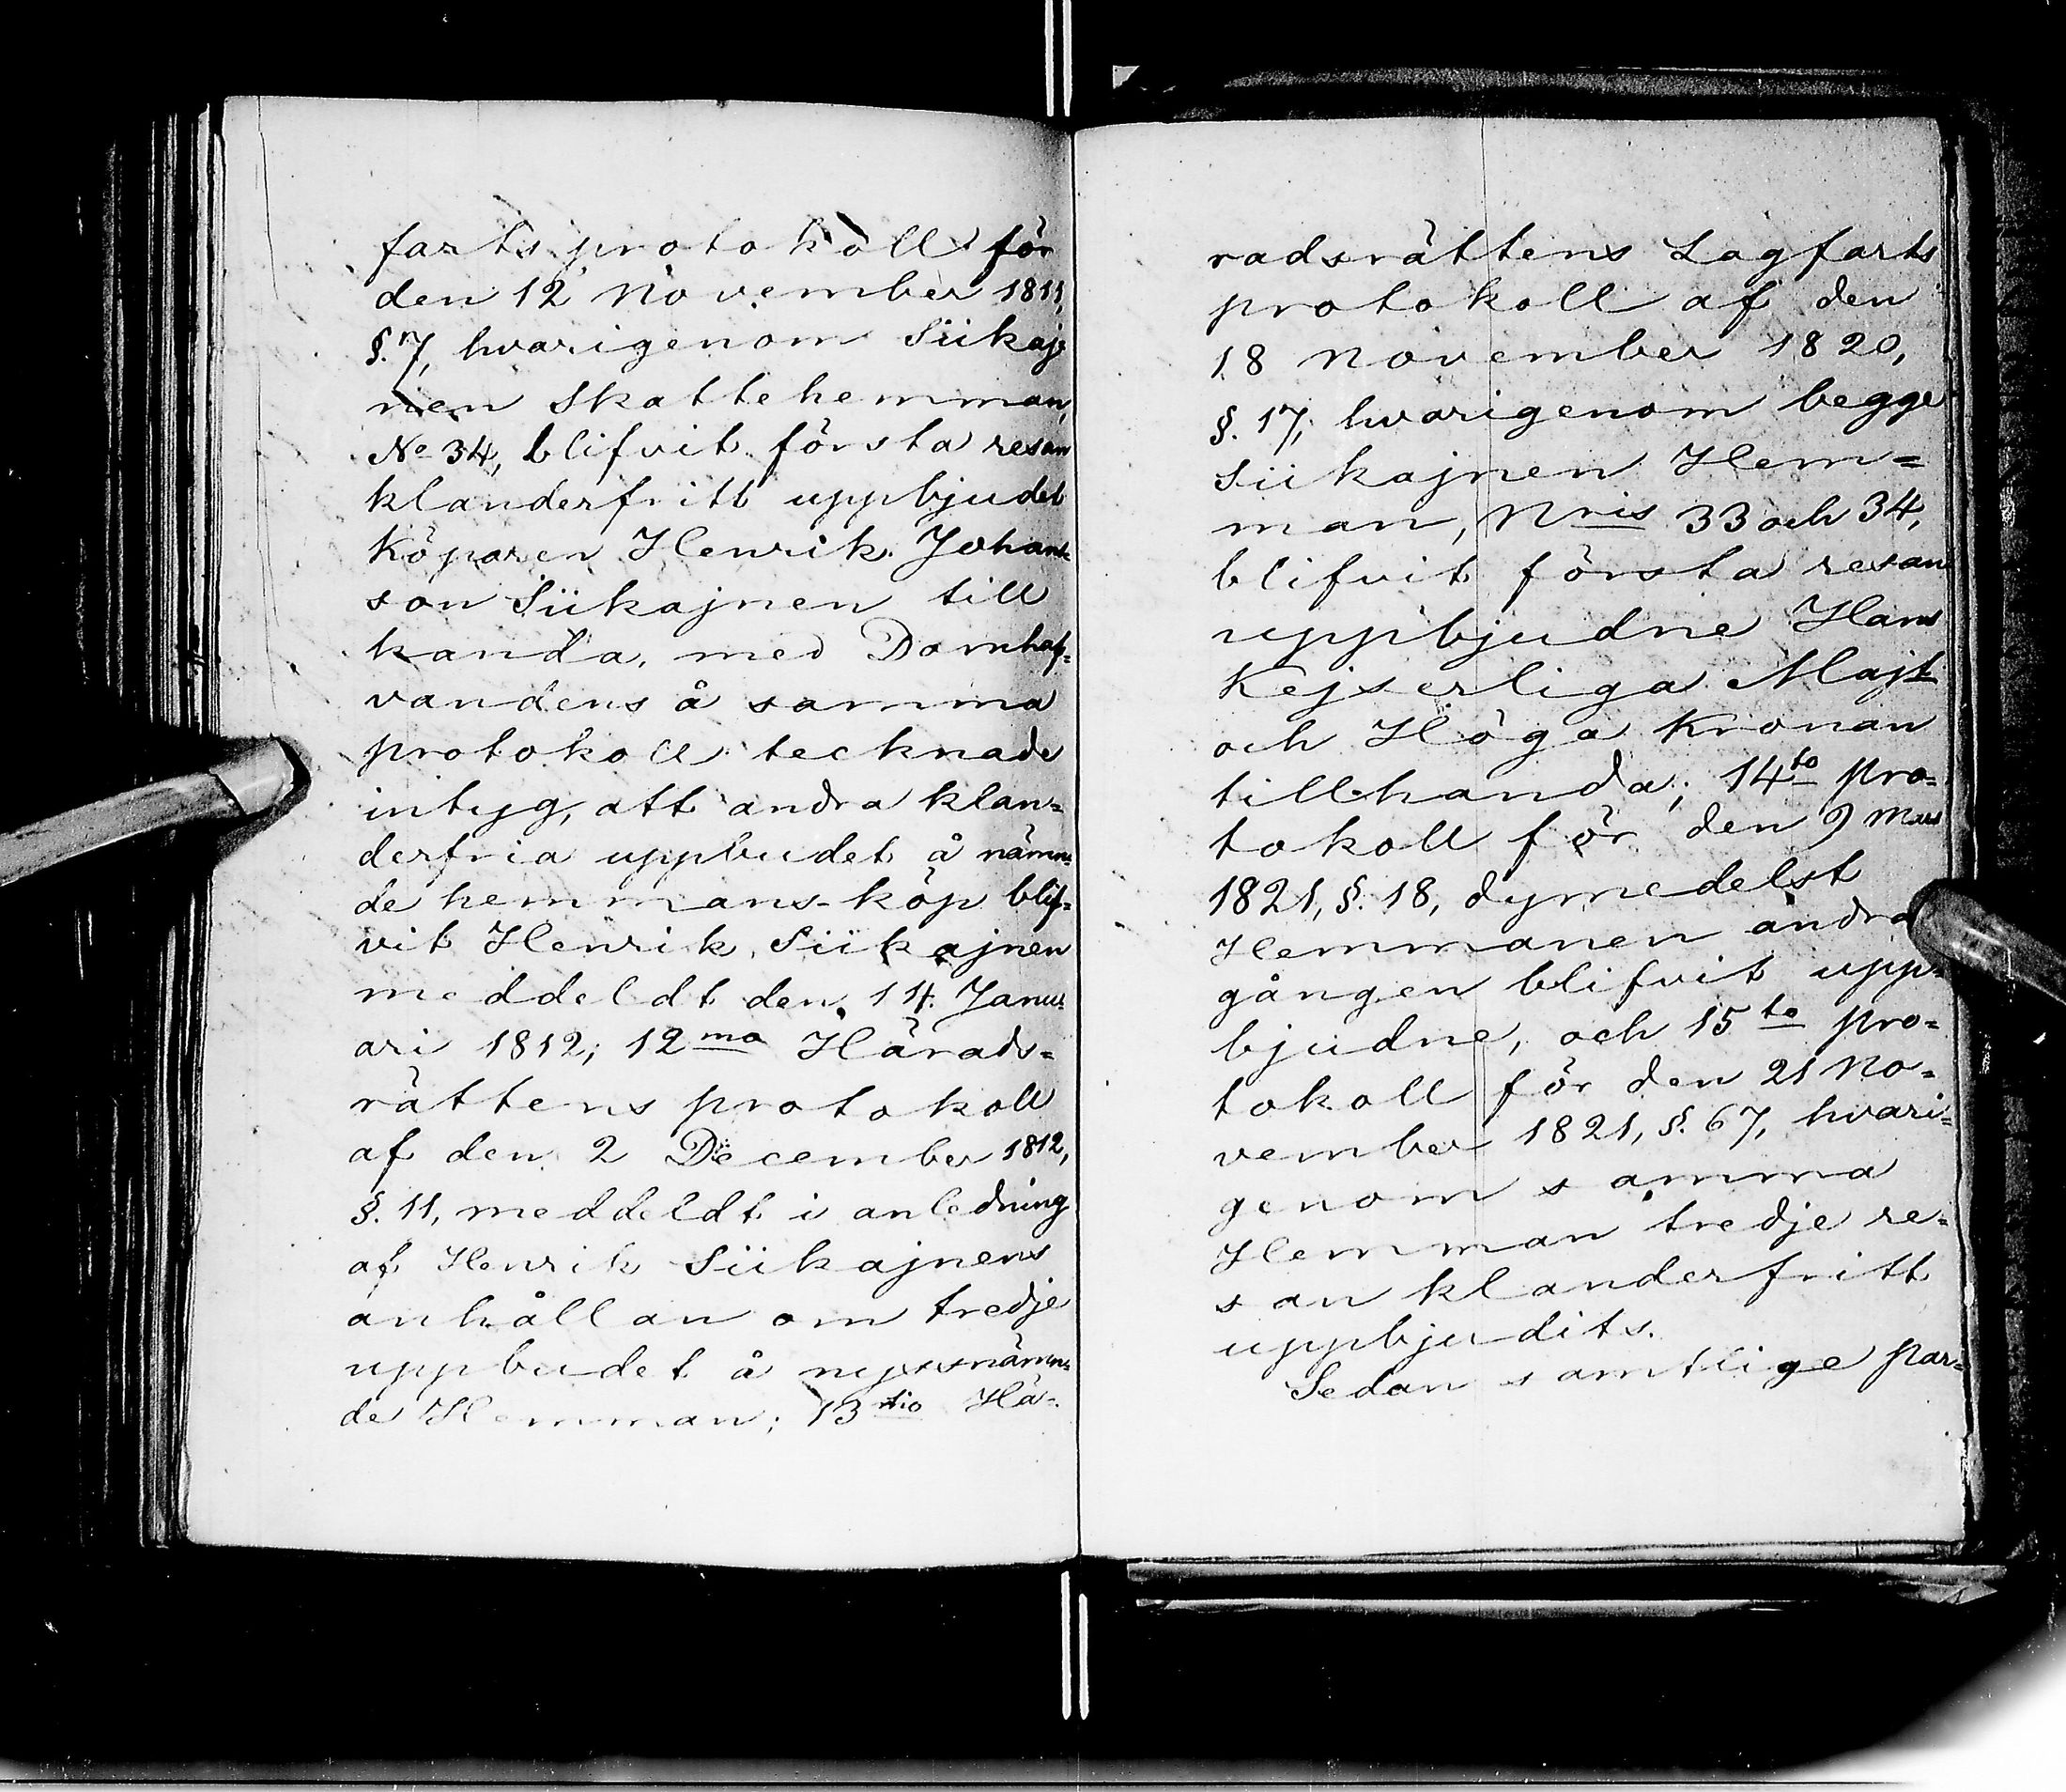 farts protokoll för
den 12 November 1811,
§. 7, hvarigenom Siikaj¬
nen Skattehemman,
No 34, blifvit första resan
klanderfritt uppbjudet
Köparen Henrik Johans¬
son Siikajnen till
handa, med Domhaf¬
vandens å samma
protokoll tecknade
intyg, att andra klan¬
derfria uppbudet å nämn¬
de hemmans-köp blif¬
vit Henrik Siikajnen
meddeldt den 14 Janu¬
ari 1812; 12mo Härads¬
rättens protokoll
af den 2 December 1812,
§. 11, meddeldt i anledning
af Henrik Siikajnens
anhållan om tredje
uppbudet å nyssnämn¬
de Hemman; 13tio Hä¬
radsrättens Lagfarts
protokoll af den
18 November 1820,
§. 17, hvarigenom begge
Siikajnen Hem=
man, Nris 33 och 34,
blifvit första resan
uppbjudne Hans
Kejserliga Majt
och Höga Kronan
tillhanda; 14to pro=
tokoll för den 9 Mars
1821, §. 18, dymedelst
Hemmanen andra
gången blifvit upp=
bjudne, och 15to pro=
tokoll för den 21 No=
vember 1821, §. 67, hvari=
genom samma
Hemman tredje re=
san klanderfritt
uppbjudits.
Sedan samtlige par=